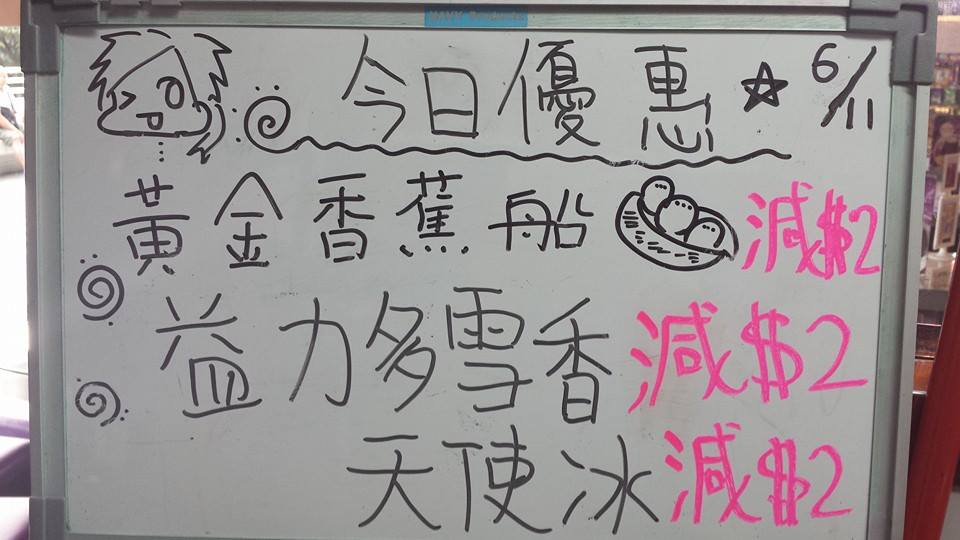 今日優惠 ☆ 6/11
黃金香蕉船 減$2
益力多雪香 減$2
天使冰 減$2